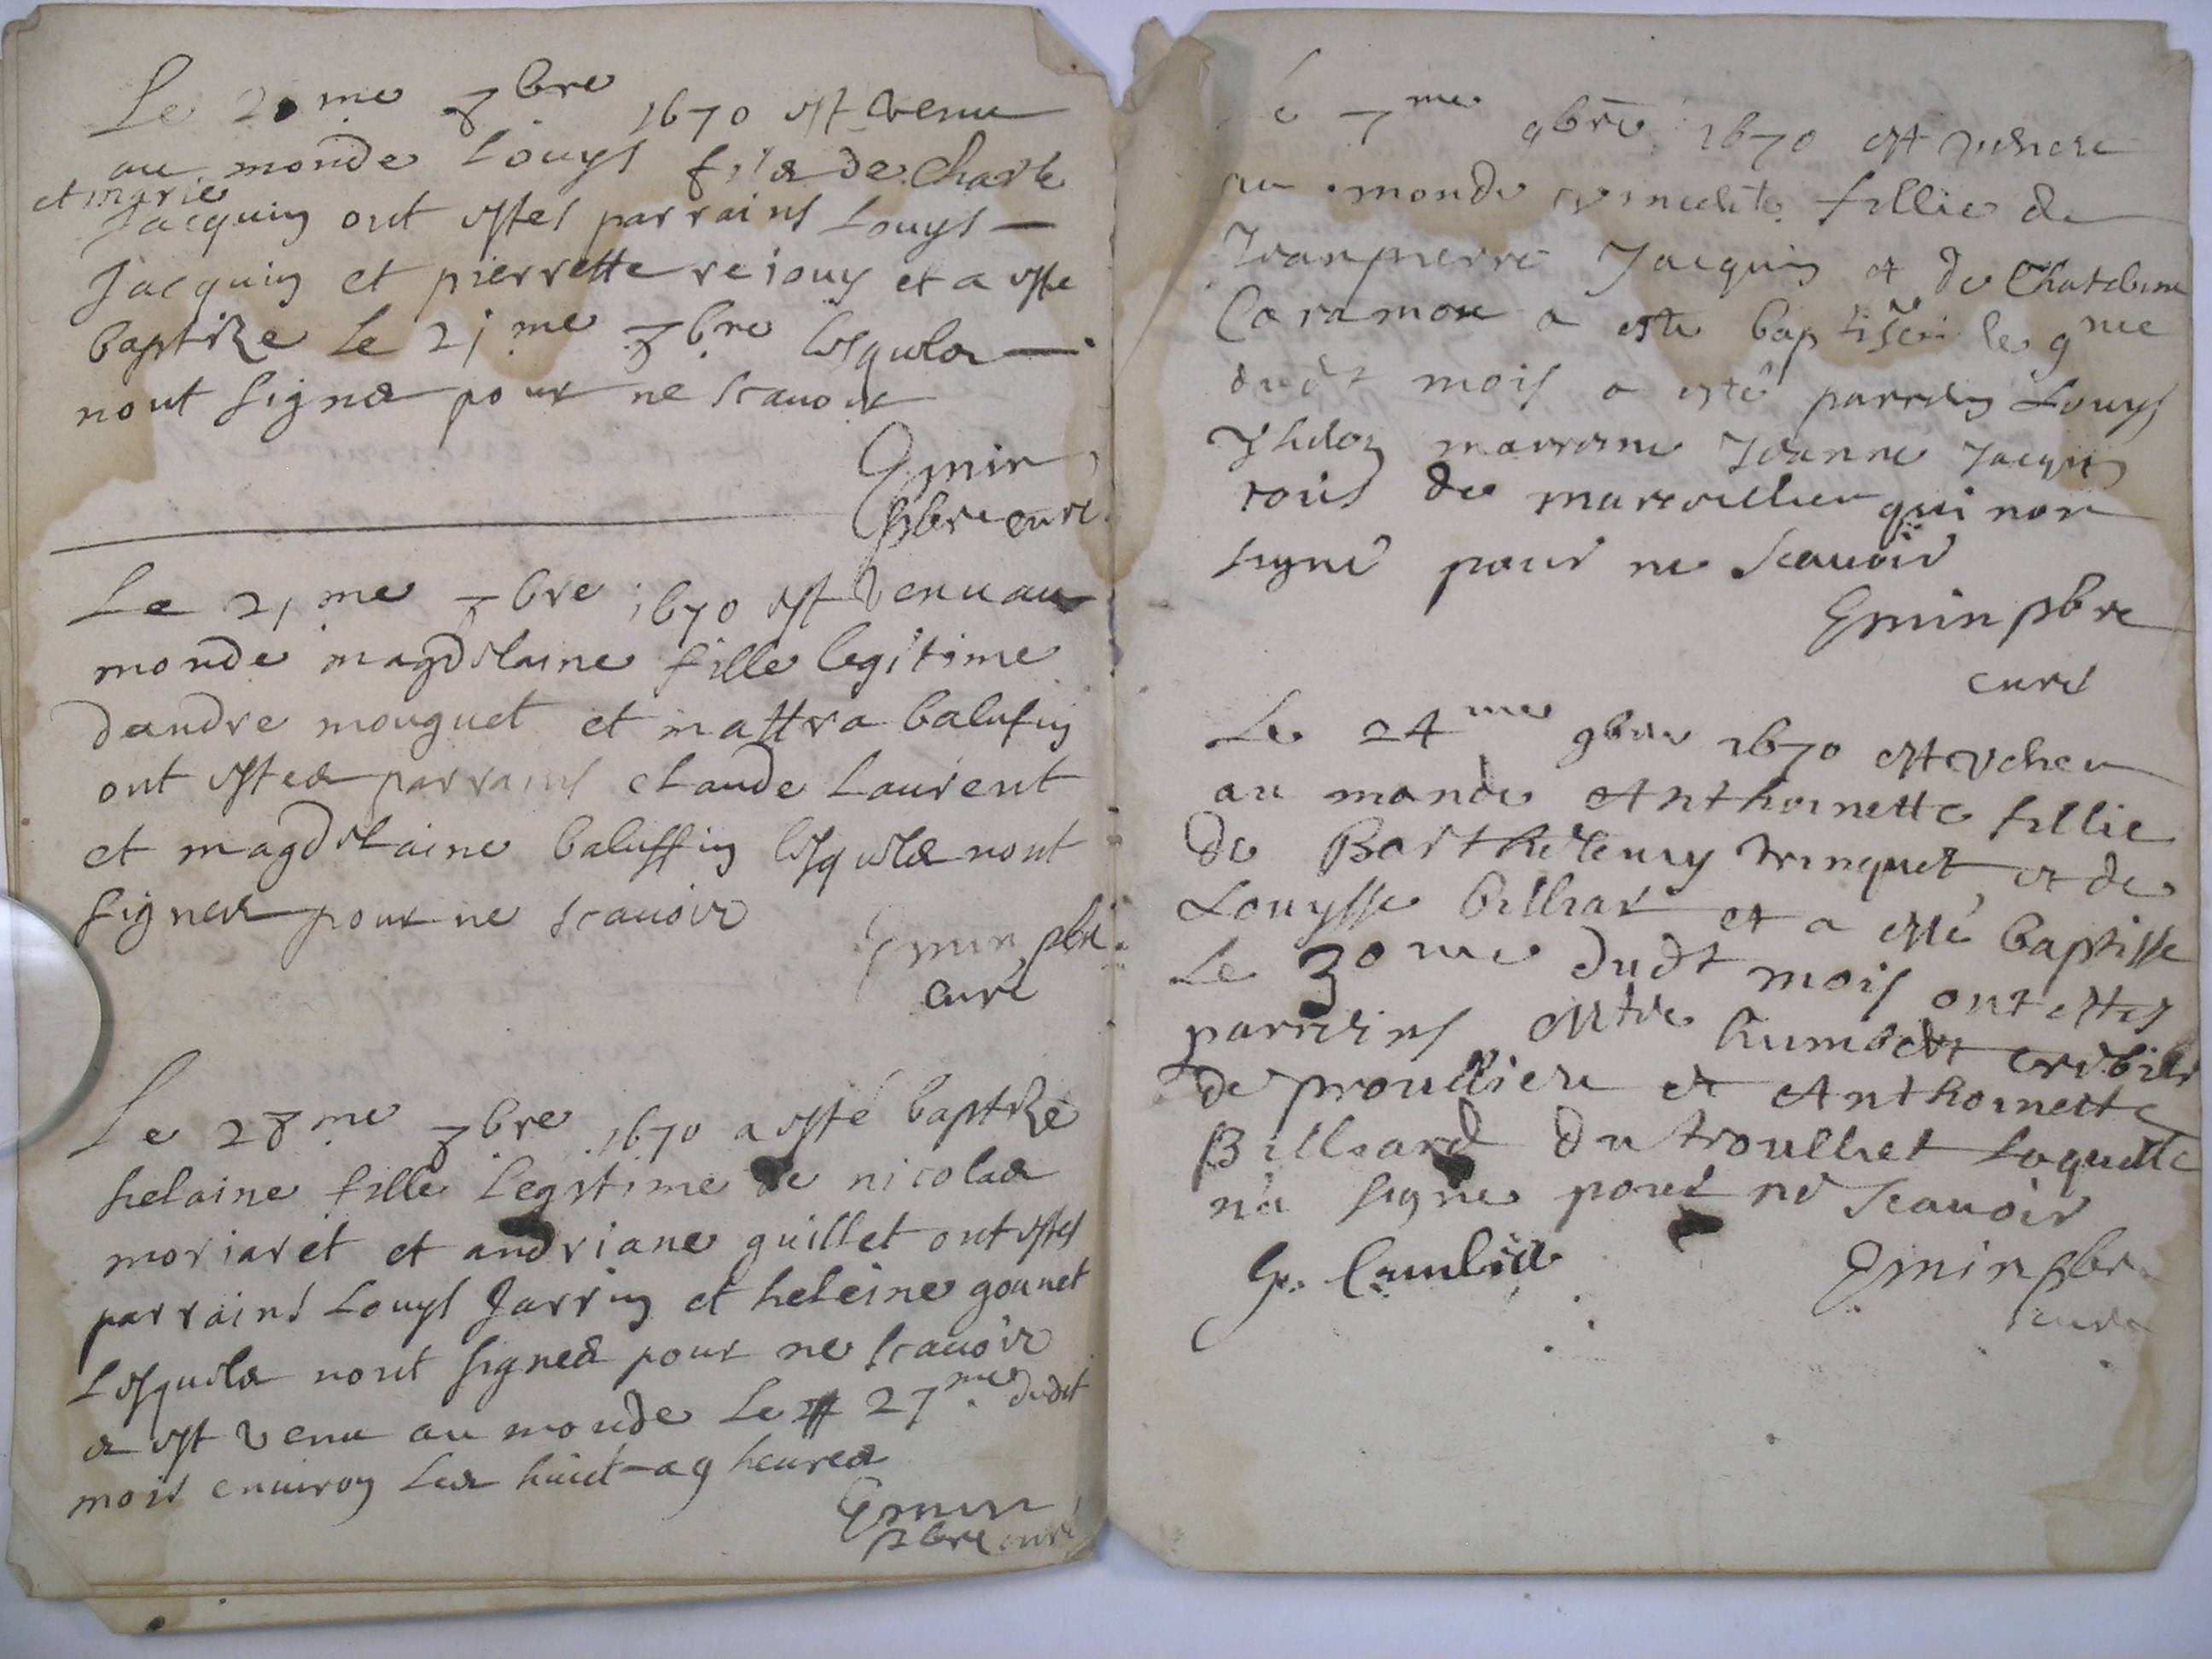 Le 20 me 7bre 1670 est venu
au monde Louys fils de Charle
et marie
Jacquin ont estes parrains Louys
Jacquin et pierrette rejouy et a este
baptize le 21 me 7bre lesquels
nont signes pour ne scavoir
Emin
pbre curé
Le 21 me 7bre 1670 est venu au
monde magdelaine fille legitime
dandre mouguet et balufin
ont estes parrains claude Laurent
et magdelaine baluffin lesquels nont
signes pour ne scavoir
Emin pbre
curé
Le 28 me 7bre 1670 a esté baptizé
helaine fille Legitime de nicolas
moriaret et andriane guillet ont estes
parrains Louys Jarrin et heleine gounet
Lesquels nont signes pour ne scavoir
& est venu au monde le 27 me dudit
mois environ les huict a 9 heures
Emin
pbre curé
7 me 9bre 1670 est venere
au monde fillie de
Jeanpierre Jacquin et de
Caramou a este baptisée le 9 me
dudt mois a esté parrein Louys
marreine Jeanne Jacquin
tous de marevillieu qui non
signé pour ne scavoir
Emin pbre
curé
Le 24 me 9bre 1670 est veneu
au monde Anthoinette fillie
de Barthelemy trinquet et de
Louysse billiar et a esté baptisse
Le 30 me dudt mois ont estes
parreins Mtre humbert
de proullieu et Anthoinette
Billiard du troulliet Laquelle
na signe pour ne scavoir
Emin pbre
curé